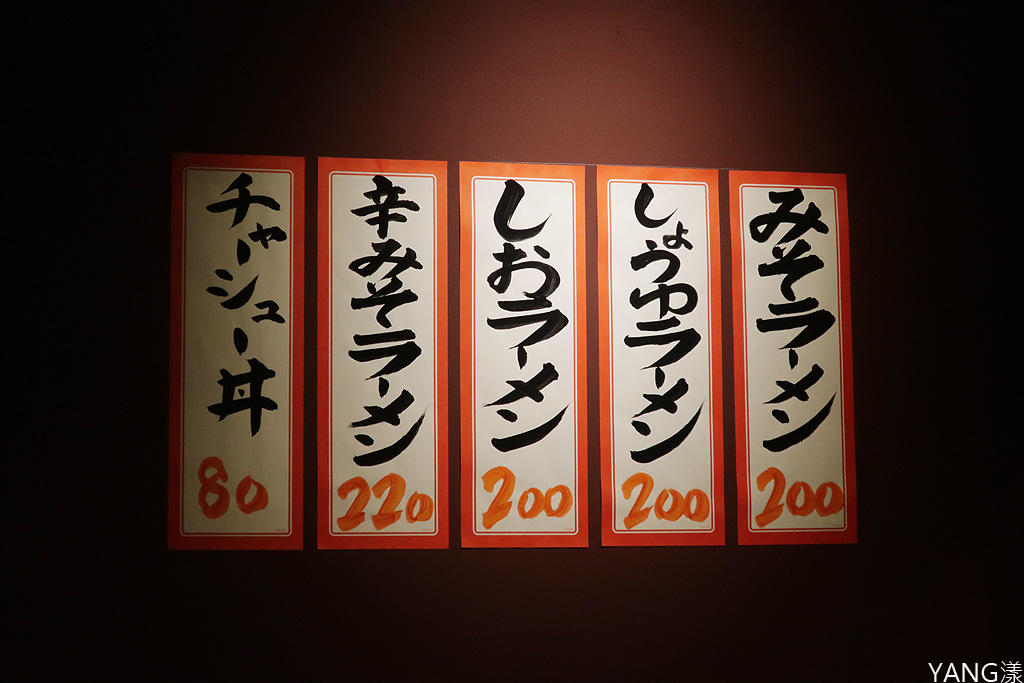 みそラーメン
200
しょうゆラーメン
200
しおラーメン
200
辛みそラーメン
220
チャーシュー丼
80
YANG漾